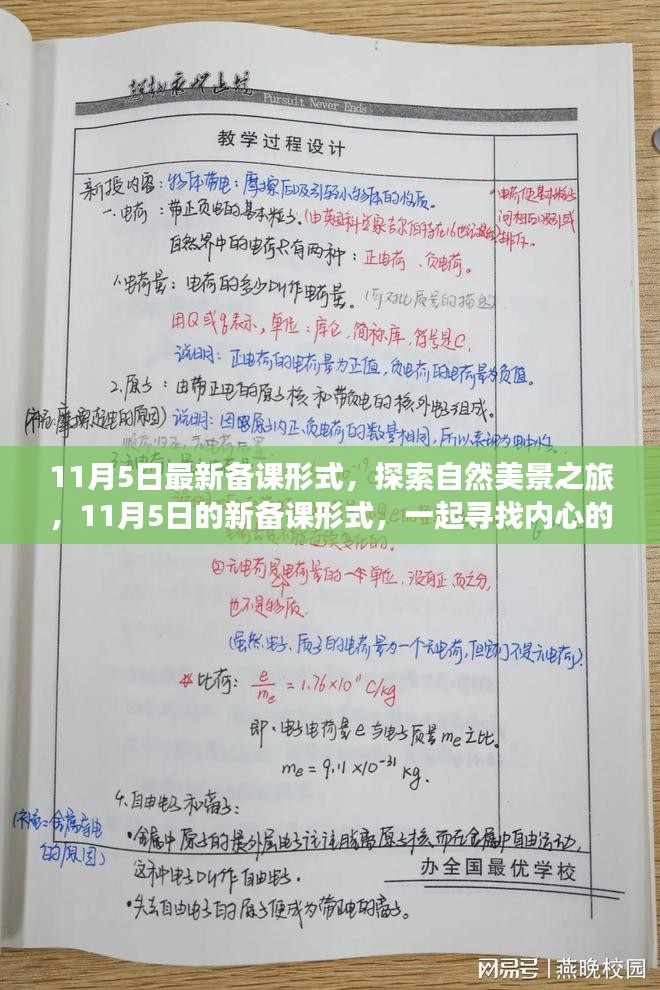 Pursuit Never Ends
教学过程设计
新授内容：物体带电：摩擦后吸引轻小物体的性质。
一、电荷：带正负电的基本粒子。
自然界中的电荷只有两种：正电荷、负电荷。
1.电荷量：电荷的多少叫作电荷量。
用Q或q表示，单位：库仑，简称库，符号是C。
说明：正电荷的电荷量为正值，负电荷的电荷量为负值。
2.原子：由带正电的原子核和带负电的核外电子组成。
(补充：摩擦起电的原因)
11月5日最新备课形式，探索自然美景之旅
，11月5日的新备课形式，一起寻找内心的
②元电荷是电荷量的一个单位，没有正负之分，
也不是物质。
(虽然电子、质子的电荷量为一个元电荷，但它们不是元电荷)
* 比荷：e/me = 1.76×10¹¹ C/kg
即：电子电荷量e与电子质量me之比。
me = 9.11×10⁻³¹ kg.
4.自由电子和离子：
(补充：金属导电的原因)
•金属中原子的最外层电子往往脱离原子核而在金属中自由运动，
这种电子叫作自由电子。
•失去自由电子的原子便成为带正电的离子。
办全国最优学校
网易号 | 燕晚校园